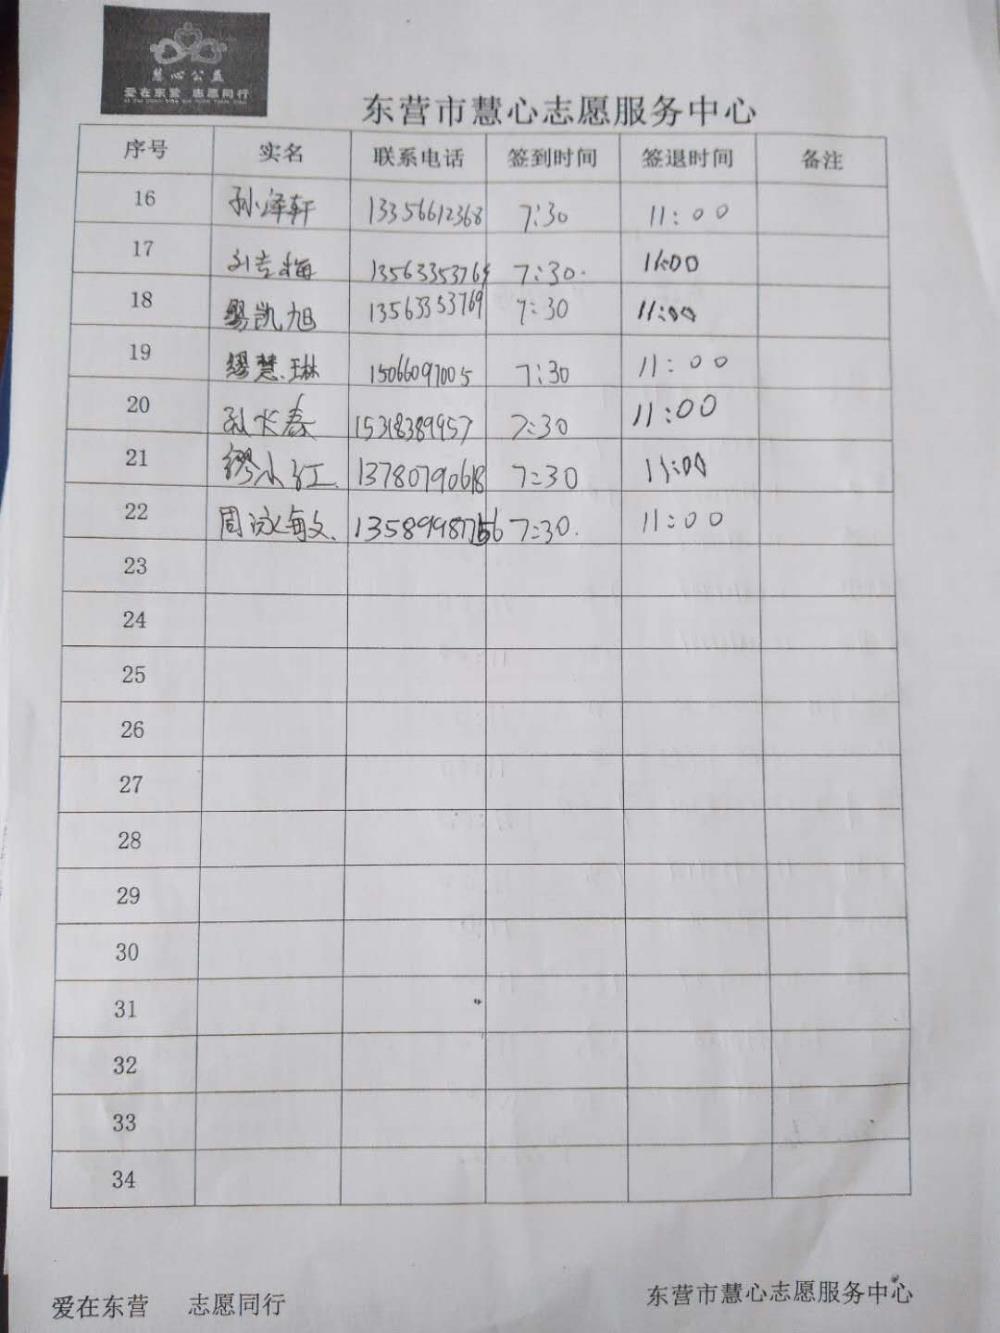 慧心公益
爱在东营 志愿同行
东营市慧心志愿服务中心
序号 实名 联系电话 签到时间 签退时间 备注
16 孙泽轩 13356612368 7:30 11:00
17 刘吉梅 13563353769 7:30. 11:00
18 凯旭 13563353769 7:30 11:00
19 缪慧琳 15066097005 7:30 11:00
20 孙长春 15318389957 7:30 11:00
21 缪小红 13780790618 7:30 11:00
22 周泳敏 7:30. 11:00
23
24
25
26
27
28
29
30
31
32
33
34
爱在东营 志愿同行 东营市慧心志愿服务中心